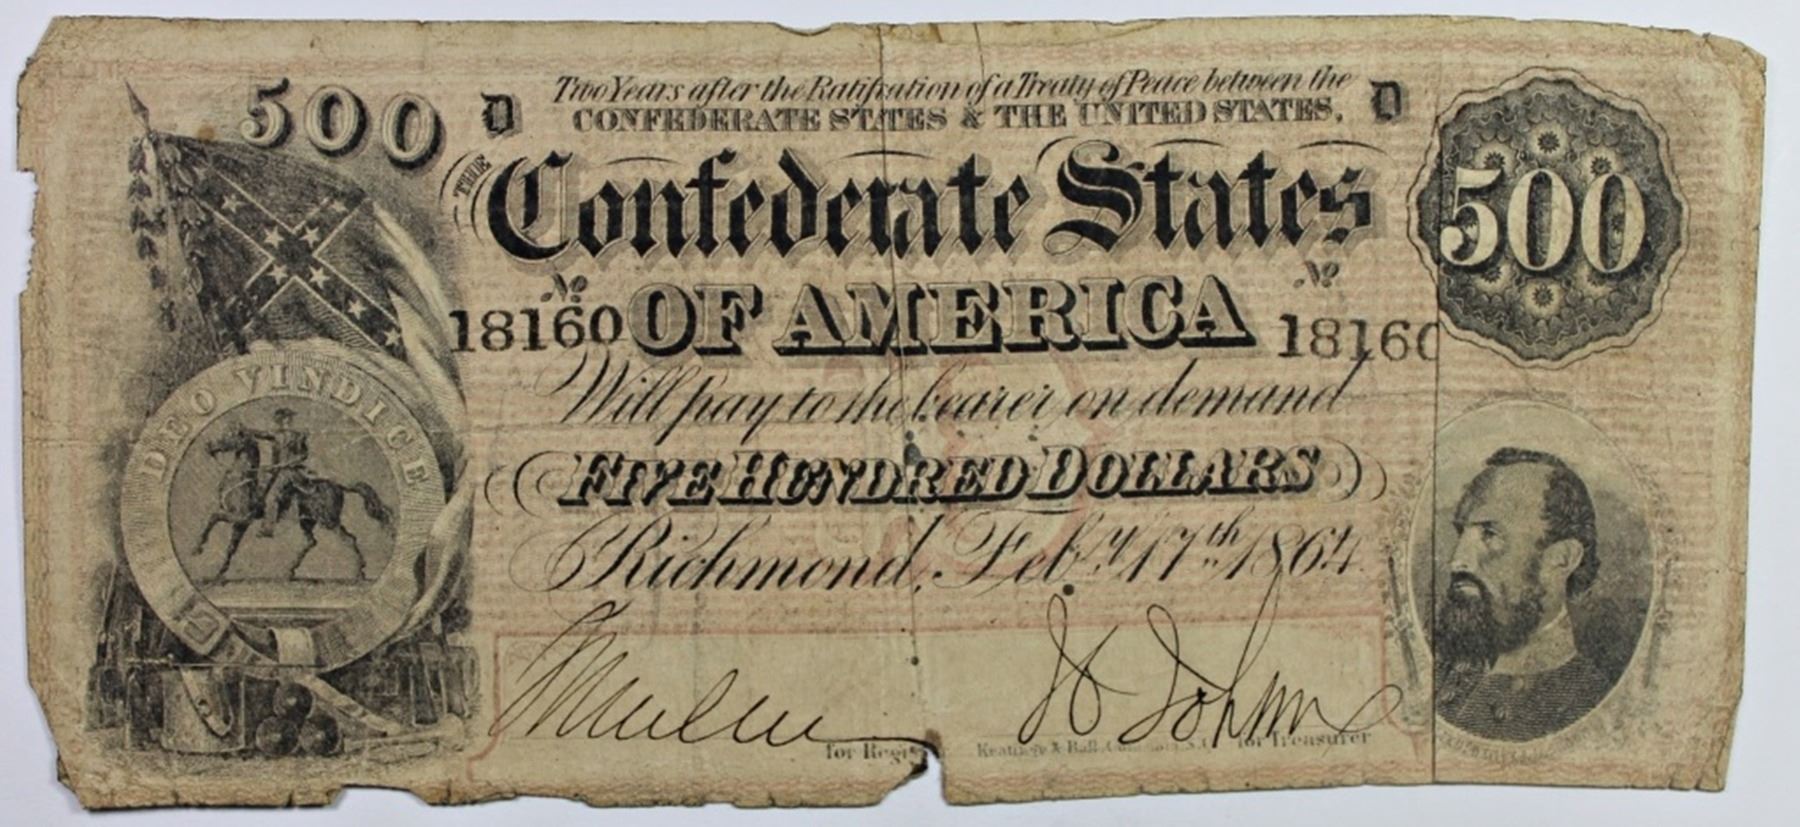 500
D
Two Years after the Ratification of a Treaty of Peace between the
CONFEDERATE STATES & THE UNITED STATES.
D
500
THE
Confederate States
OF AMERICA
No
18160
No
18160
Will pay to the bearer on demand
FIVE HUNDRED DOLLARS
Richmond, Feby. 17th. 1864.
DEO VINDICE
for Regis
Keatinge & Ball, Columbia, S.C.
for Treasurer